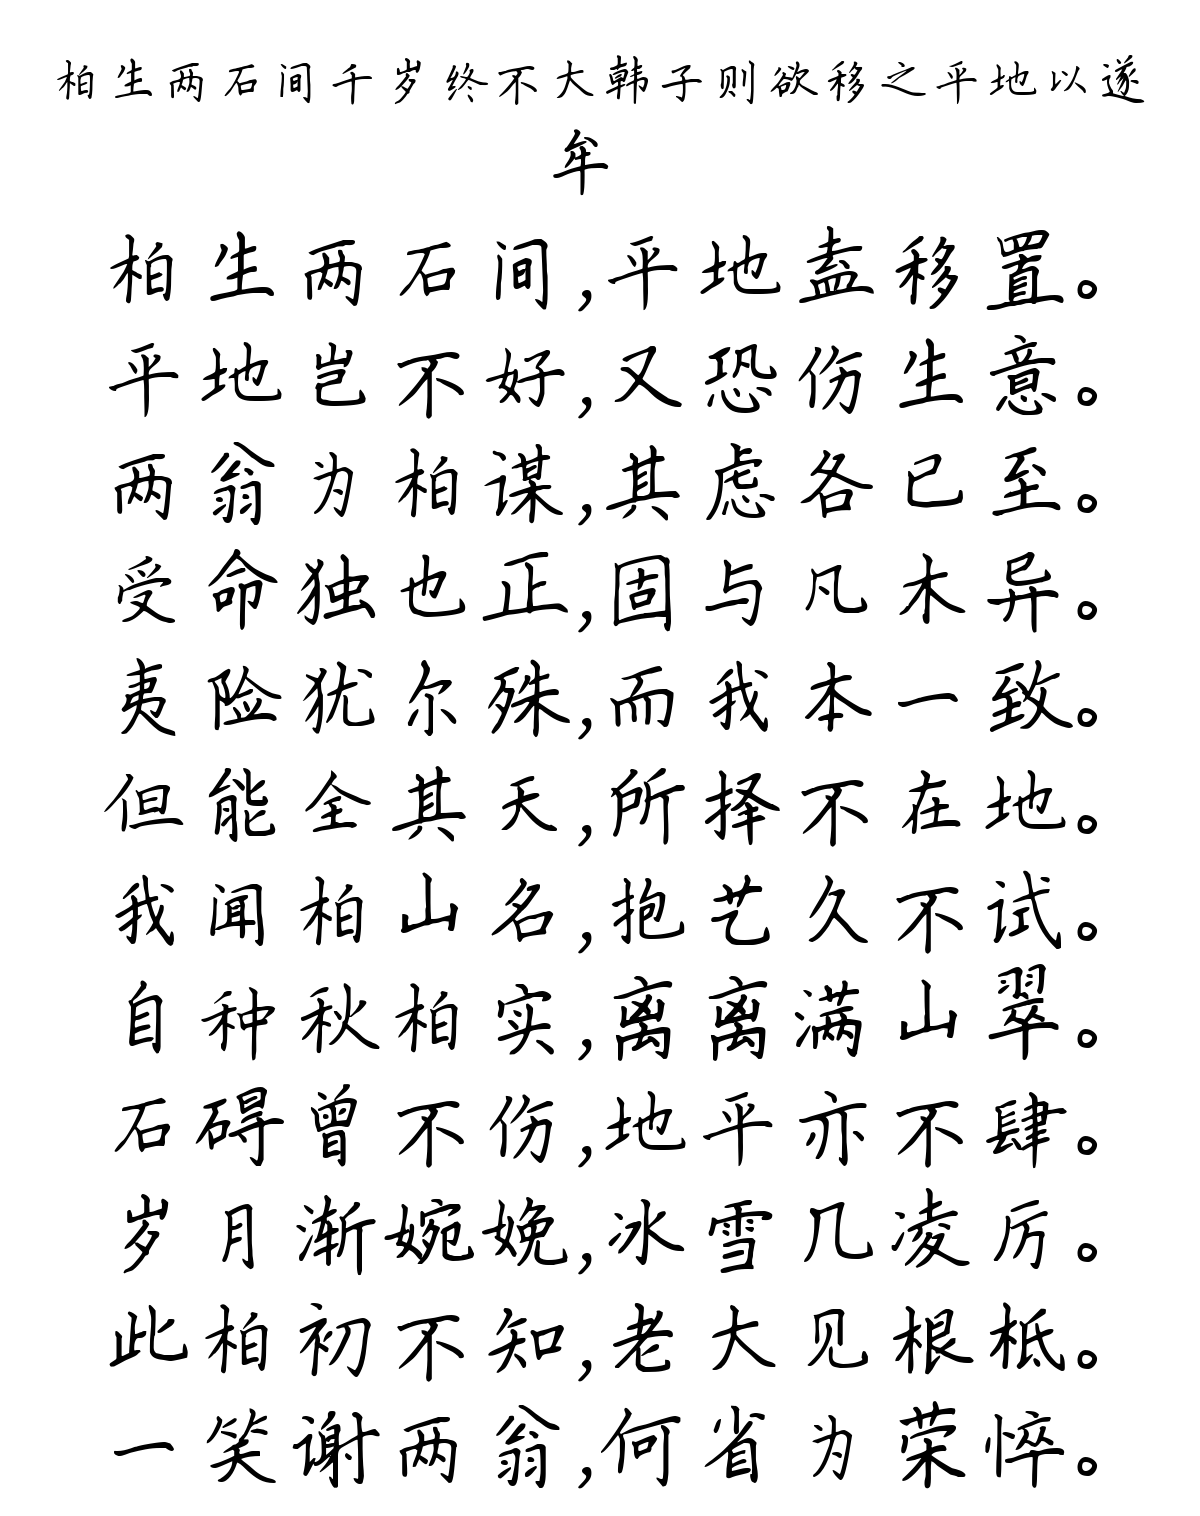 柏生两石间千岁终不大韩子则欲移之平地以遂
牟
柏生两石间,平地盍移置。
平地岂不好,又恐伤生意。
两翁为柏谋,其虑各已至。
受命独也正,固与凡木异。
夷险犹尔殊,而我本一致。
但能全其天,所择不在地。
我闻柏山名,抱艺久不试。
自种秋柏实,离离满山翠。
石碍曾不伤,地平亦不肆。
岁月渐婉娩,冰雪几凌厉。
此柏初不知,老大见根柢。
一笑谢两翁,何省为荣悴。